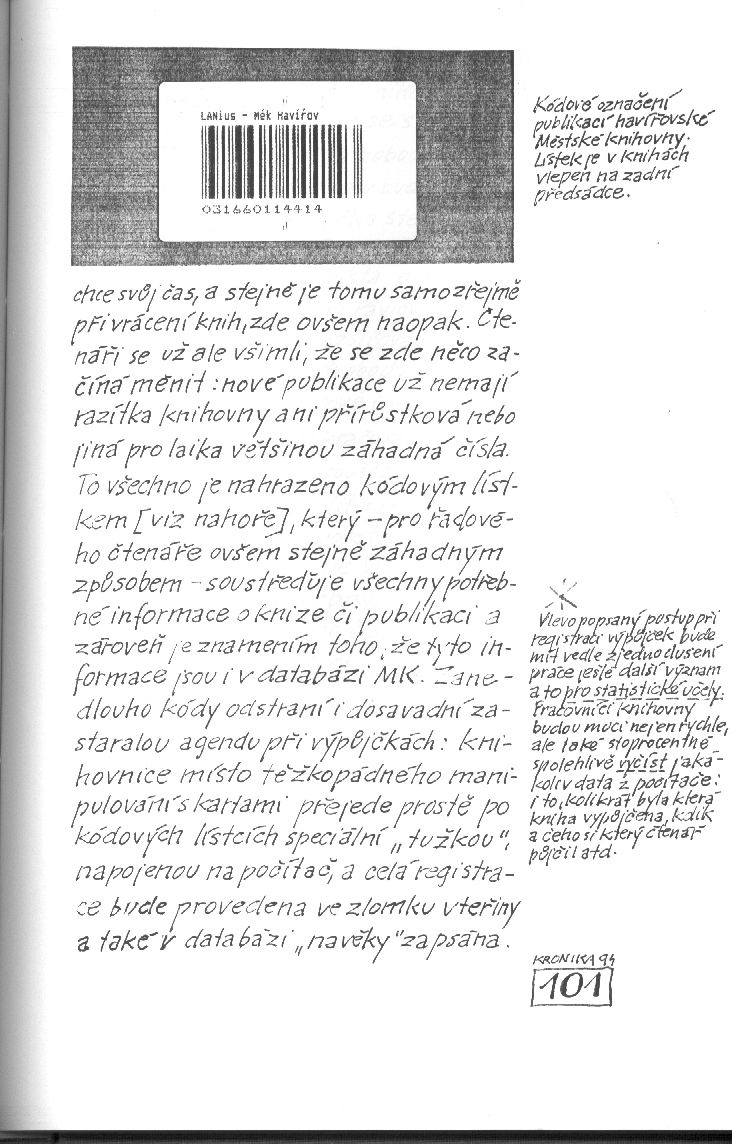 LANius - Měk Havířov
031660114414
Kódové označení
publikací havířovské
Městské knihovny.
Lístek je v knihách
vlepen na zadní
předsádce.
chce svůj čas, a stejně je tomu samozřejmě
při vrácení knih, zde ovšem naopak. Čte-
náři se už ale všimli, že se zde něco za-
číná měnit: nové publikace už nemají
razítka knihovny ani přírůstková nebo
jiná pro laika většinou záhadná čísla.
To všechno je nahrazeno kódovým líst-
kem [viz nahoře], který – pro řadové-
ho čtenáře ovšem stejně záhadným
způsobem – soustřeďuje všechny potřeb-
né informace o knize či publikaci a
zároveň je znamením toho, že tyto in-
formace jsou i v databázi MK. Zane-
dlouho kódy odstraní i dosavadní za-
staralou agendu při výpůjčkách: kni-
hovnice místo těžkopádného mani-
pulování s kartami přejede prostě po
kódových lístcích speciální „tužkou“,
napojenou na počítač, a celá registra-
ce bude provedena ve zlomku vteřiny
a také v databázi „navěky“ zapsána.
Vlevo popsaný postup při
registraci výpůjček bude
mít vedle zjednodušení
práce ještě další význam
a to pro statistické účely.
Pracovníci knihovny
budou moci nejen rychle,
ale také stoprocentně
spolehlivě vyčíst jaká-
koliv data z počítače:
i to, kolikrát byla která
kniha vypůjčena, kdy
a čeho si který čtenář
půjčil atd.
KRONIKA 94
101